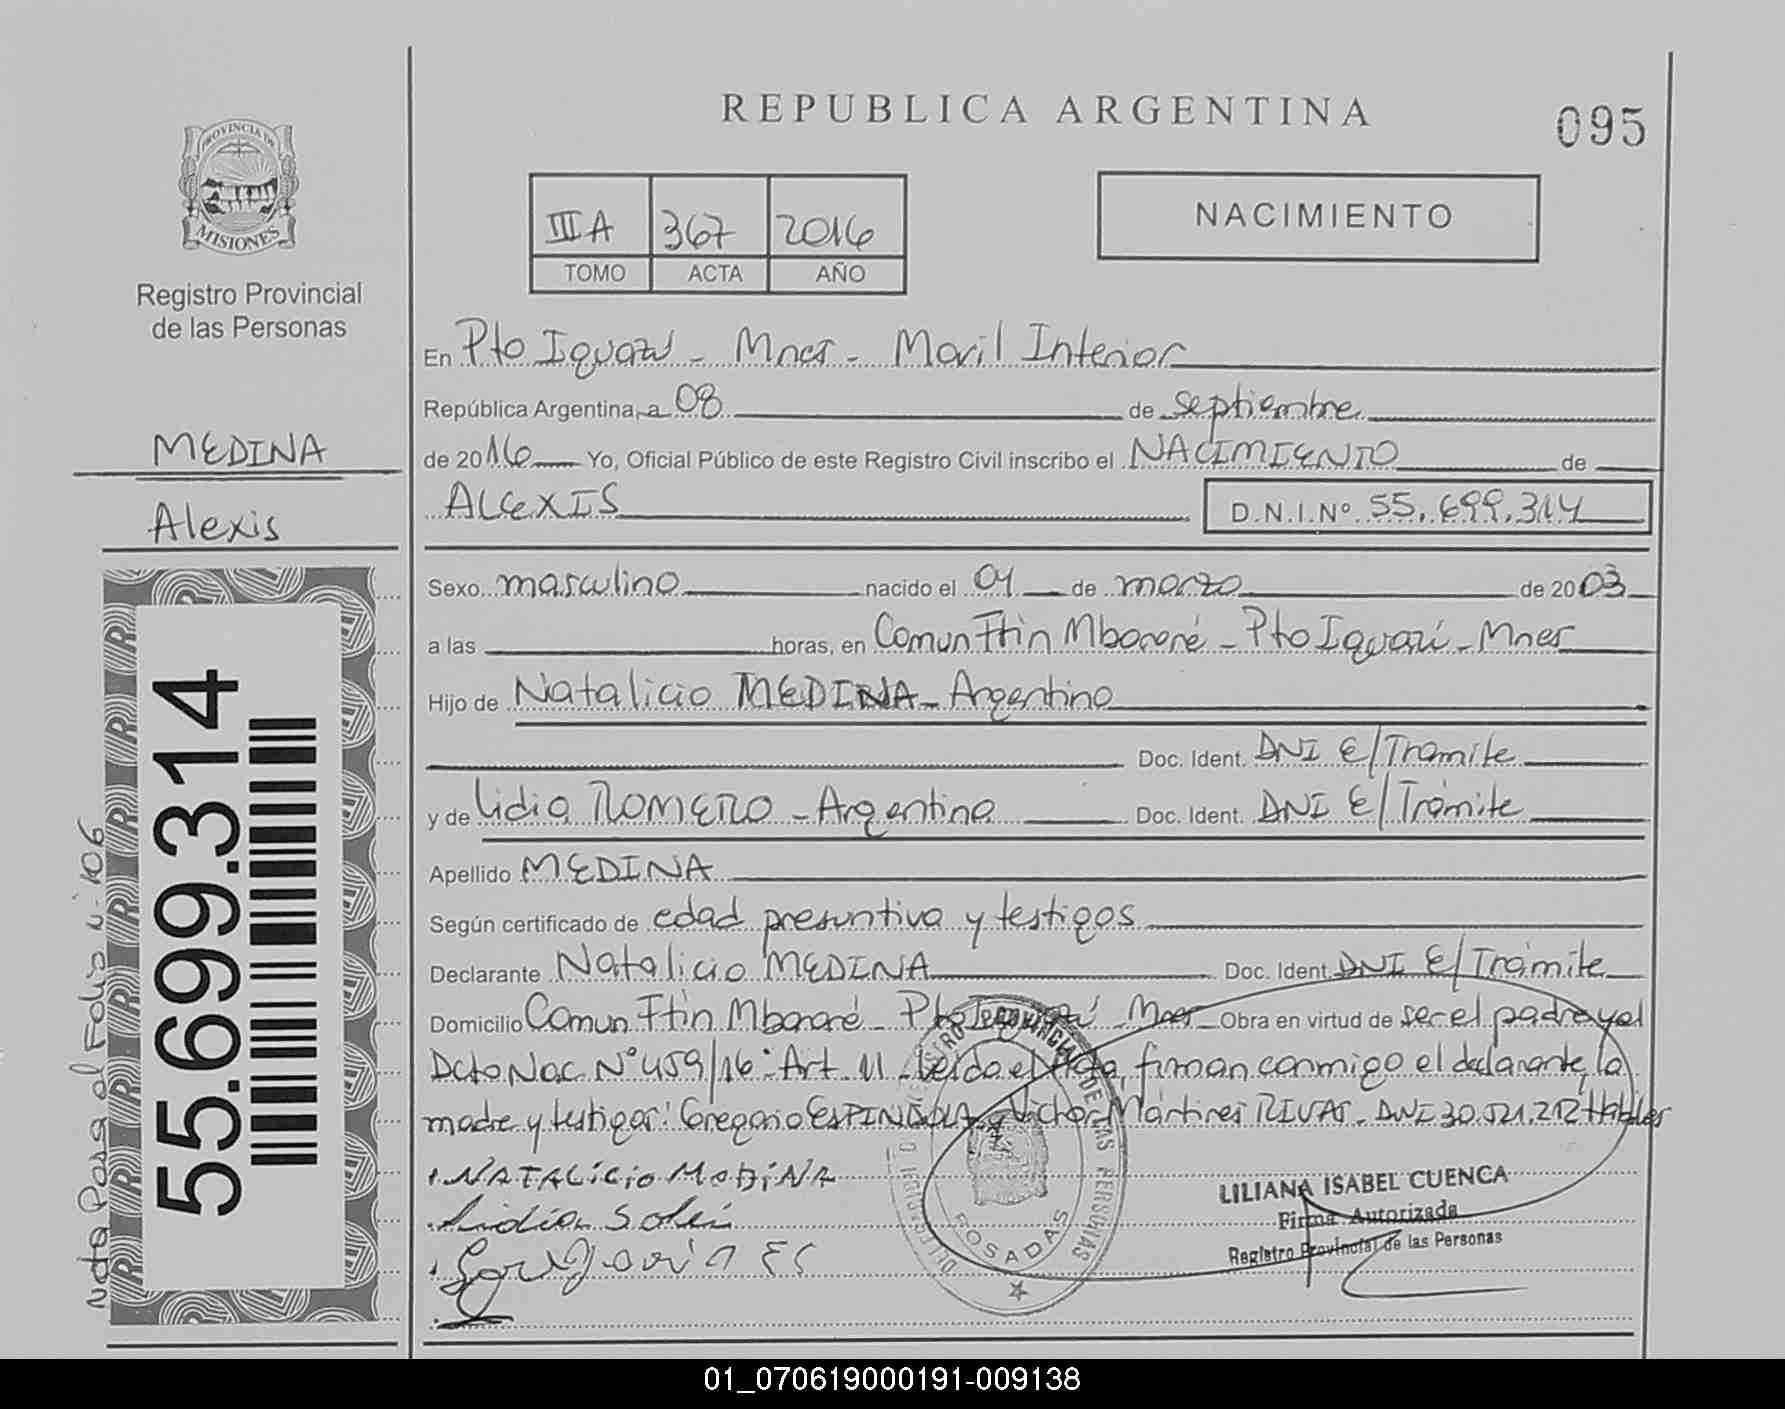 REPUBLICA ARGENTINA
095
PROVINCIA DE
MISIONES
Registro Provincial
de las Personas
IIIA 367 2016
TOMO ACTA AÑO
NACIMIENTO
MEDINA
Alexis
55.699.314
Nota Pasa al Folio N° 106
En Pto Iguazú - Mnes - Movil Interior
República Argentina, a 08 de septiembre
de 2016 Yo, Oficial Público de este Registro Civil inscribo el NACIMIENTO de
ALEXIS D.N.I.Nº 55.699.314
Sexo masculino nacido el 04 de marzo de 2003
a las horas, en Comun Ftin Mbororé - Pto Iguazú - Mnes
Hijo de Natalicio MEDINA - Argentino
Doc. Ident. DNI E/Tramite
y de Lidia ROMERO - Argentina Doc. Ident. DNI E/Trámite
Apellido MEDINA
Según certificado de edad presuntiva y testigos
Declarante Natalicio MEDINA Doc. Ident. DNI E/Trámite
Domicilio Comun Ftin Mbororé - Pto Iguazú - Mnes Obra en virtud de ser el padre y el
Dcto Nac N° 459/16 - Art. 11 - Leída el Acta, firman conmigo el declarante, la
madre y testigos: Gregorio ESPINDOLA y Victor Martires RIVAS - DNI 30.521.212 Hábiles
NATALICIO MEDINA
REGISTRO PROVINCIAL DE LAS PERSONAS
POSADAS
LILIANA ISABEL CUENCA
Firma Autorizada
Registro Provincial de las Personas
01_070619000191-009138